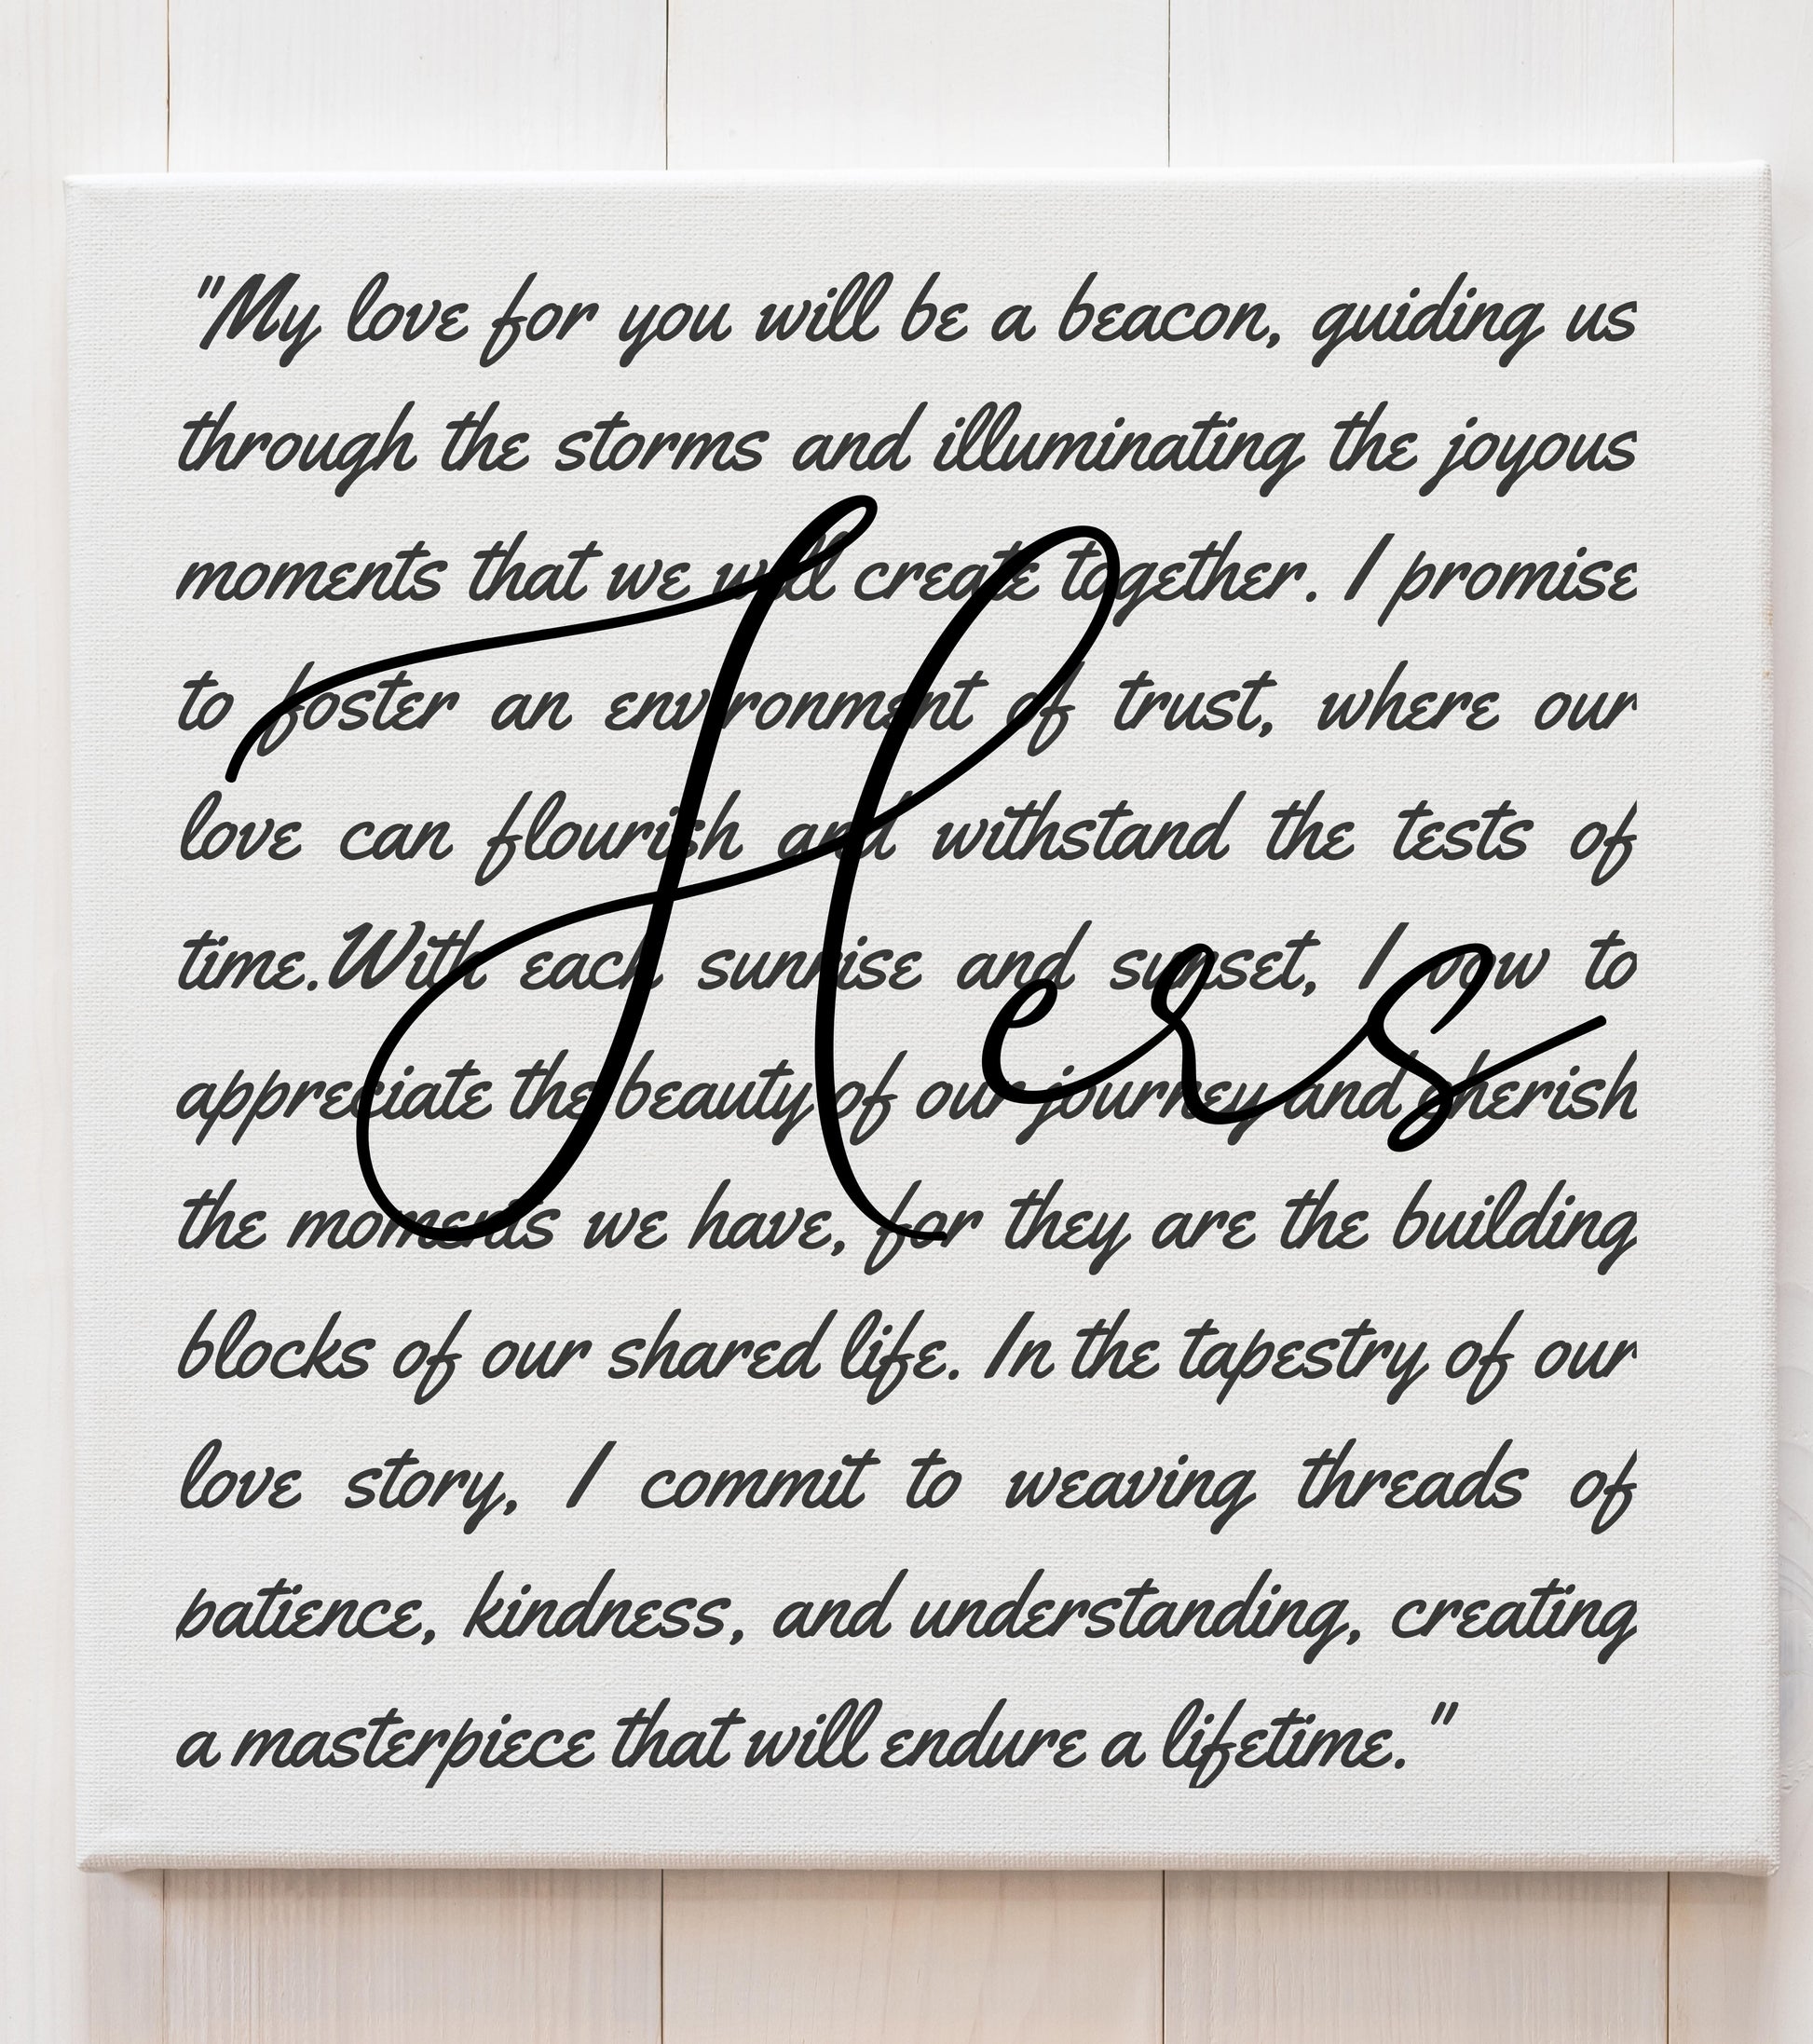 "My love for you will be a beacon, guiding us
through the storms and illuminating the joyous
moments that we will create together. I promise
to foster an environment of trust, where our
love can flourish and withstand the tests of
time.With each sunrise and sunset, I vow to
appreciate the beauty of our journey and cherish
the moments we have, for they are the building
blocks of our shared life. In the tapestry of our
love story, I commit to weaving threads of
patience, kindness, and understanding, creating
a masterpiece that will endure a lifetime."
Hers